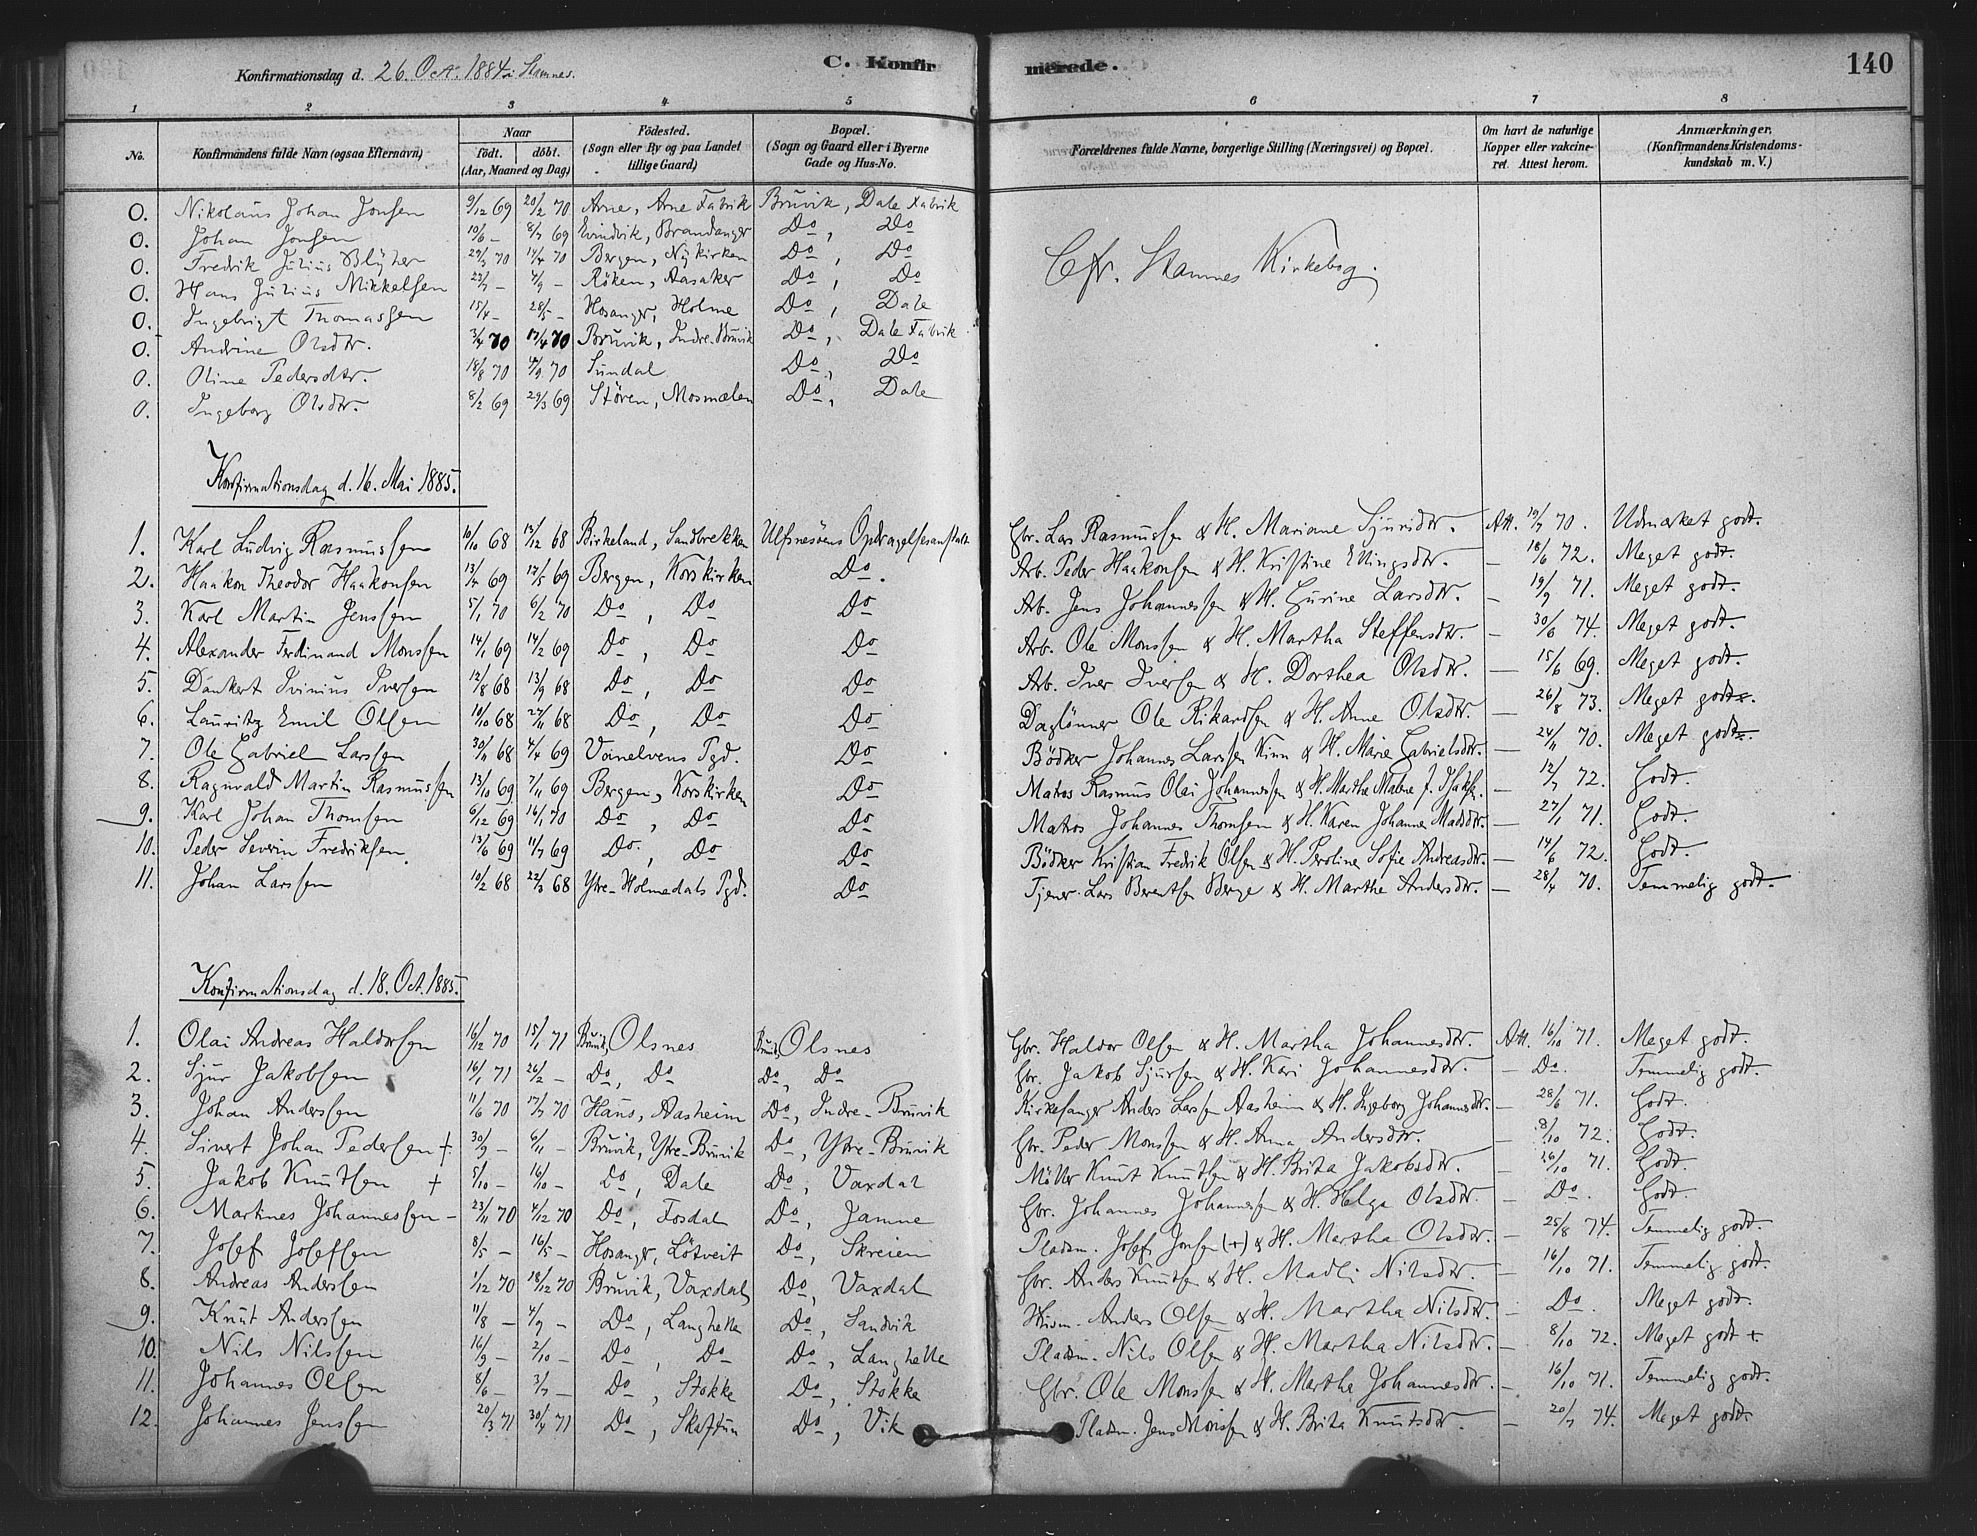 Konfirmationsdag d. 26. Oct. 1884 i Stamnes. C. Konfirmerede. 140
1 2 3 4 5 6 7 8
No. Konfirmandens fulde Navn (ogsaa Efternavn) Naar født. døbt. (Aar, Maaned og Dag) Fødested. (Sogn eller By og paa Landet tillige Gaard) Bopæl. (Sogn og Gaard eller i Byerne Gade og Hus-No. Forældrenes fulde Navne, borgerlige Stilling (Næringsvei) og Bopæl. Om havt de naturlige Kopper eller vakcineret. Attest herom. Anmærkninger, (Konfirmandens Kristendomskundskab m. V.)
0. Nikolaus Johan Jonsen 9/12 69 20/2 70 Arne, Arne Fabrik Bruvik, Dale Fabrik
0. Johan Jonsen 10/6 – 8/7 69 Evindvik, Brandanger Do, Do
0. Fredrik Julius Blÿher 29/3 70 14/4 70 Bergen, Nykirken Do, Do
0. Hans Julius Mikkelsen 23/7 – 4/9 – Röken, Aasaker Do, Do
0. Ingebrigt Thomassen 15/4 – 28/5 – Hosanger, Holme Do, Dale
0. Andrine Olsdtr. 3/4 70 17/4 70 Bruvik, Indre-Bruvik Do, Dale Fabrik
0. Oline Pedersdtr. 18/8 70 4/9 70 Sundal Do, Do
0. Ingeborg Olsdtr. 8/2 69 29/3 69 Stören, Mosmælen Do, Dale
Cfr. Stamnes Kirkebog.
Konfirmationsdag d. 16. Mai 1885.
1. Karl Ludvig Rasmussen 10/10 68 13/12 68 Birkeland, Sandbrekken Ulfsnesöens Opdragelsesanstalt Gbr. Lars Rasmussen & H. Mariane Sjursdtr. Att. 19/7 70. Udmærket godt.
2. Haakon Theodor Haakonsen 13/4 69 17/5 69 Bergen, Korskirken Do. Arb. Peder Haakonsen & H. Kristine Ellingsdtr. – 18/6 72. Meget godt.
3. Karl Martin Jenssen 5/1 70 6/2 70 Do, Do Do Arb. Jens Johannessen & H. Gurine Larsdtr. – 19/9 71. Meget godt.
4. Alexander Ferdinand Monssen 14/1 69 14/2 69 Do, Do Do Arb. Ole Monssen & H. Martha Steffensdtr. – 30/6 74. Meget godt.
5. Dankert Ivinius Iversen 12/8 68 13/9 68 Do, Do Do Arb. Iver Iversen & H. Dorthea Olsdtr. – 15/6 69. Meget godt.
6. Lauritz Emil Olsen 10/10 68 27/11 68 Do, Do Do Daglönner Ole Rikardsen & H. Anne Olsdtr. – 26/8 73. Meget godt.
7. Ole Gabriel Larssen 30/11 68 4/4 69 Voinelvens Pgd. Do Bödker Johannes Larssen Kinn & H. Marie Gabrielsdtr. – 24/11 70. Meget godt.
8. Ragnvald Martin Rasmussen 13/10 69 7/11 69 Bergen, Korskirken Do Matros Rasmus Olai Johannessen & H. Marthe Malene – 12/7 72. Godt.
9. Karl Johan Thomsen 6/12 69 16/1 70 Do, Do Do Matros Johannes Thomsen & H. Karen Johanne Madsdtr. – 27/1 71. Godt.
10. Peder Severin Fredriksen 13/6 69 11/7 69 Do, Do Do Bödker Kristian Fredrik Olsen & H. Peroline Sofie Andreasdtr. – 14/6 72. Godt.
11. Johan Larssen 10/2 68 22/3 68 Ytre-Holmedals Pgd. Do Tjener Lars Berentsen Berge & H. Marthe Andersdtr. – 28/4 70. Temmelig godt.
Konfirmationsdag d. 18. Oct. 1885.
1. Olai Andreas Haldorsen 16/12 70 15/1 71 Bruvik, Olsnes Bruvik, Olsnes Gbr. Haldor Olsen & H. Martha Johannesdtr. Att. 16/10 71. Meget godt.
2. Sjur Jakobsen 16/1 71 26/2 – Do, Do Do, Do Gbr. Jakob Sjursen & H. Kari Johannesdtr. – Do. Temmelig godt.
3. Johan Anderssen 11/6 70 17/7 70 Haus, Aasheim Do, Indre-Bruvik Kirkesanger Anders Larsen Aasheim & H. Ingeborg Johannesdtr. – 28/6 71. Godt.
4. Sivert Johan Pedersen + 30/9 – 6/11 – Bruvik, Ytre-Bruvik Do, Ytre-Bruvik Gbr. Peder Monssen & H. Anna Andersdtr. – 8/10 72. Godt.
5. Jakob Knutsen + 5/10 – 16/10 – Do, Dale Do, Vaxdal Möller Knut Knutsen & H. Brita Jakobsdtr. – 26/10 71. Godt.
6. Martines Johannessen – 23/11 70 4/12 70 Do, Fosdal Do, Jamne Gbr. Johannes Johannessen & H. Helga Olsdtr. – Do. Godt.
7. Josef Josefsen 8/5 – 16/5 – Hosanger, Lötveit Do, Skreien Pladsm. Josef Jonsen (+) & H. Martha Olsdtr. – 25/8 74. Temmelig godt.
8. Andreas Anderssen 1/12 70 18/12 70 Bruvik, Vaxdal Do, Vaxdal Gbr. Anders Knutsen & H. Madli Nilsdtr. – 16/10 71. Temmelig godt.
9. Knut Anderssen 11/8 – 4/9 – Do, Langhelle Do, Sandvik Husm. Anders Olsen & H. Martha Nilsdtr. – Do. Meget godt.
10. Nils Nilssen 16/9 – 2/10 – Do, Do Do, Langhelle Pladsm. Nils Olsen & H. Martha Nilsdtr. – 8/10 72. Meget godt +
11. Johannes Olsen 8/6 – 3/7 – Do, Stokke Do, Stokke Gbr. Ole Monssen & H. Martha Johannesdtr. – 16/10 71. Temmelig godt.
12. Johannes Jenssen 20/3 71 30/4 71 Do, Skaftun Do, Vik Pladsm. Jens Monssen & H. Brita Knutsdtr. – 20/7 74. Meget godt.